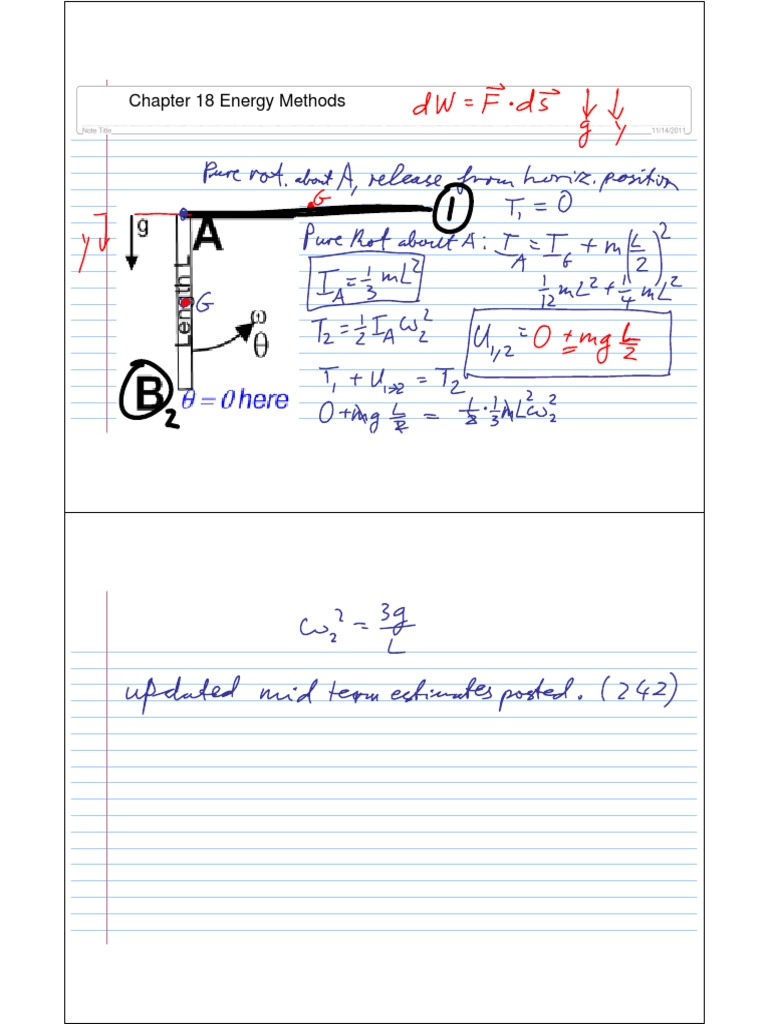 Chapter 18 Energy Methods
dW = F⃗ · ds⃗ ↓ ↓
g y
Note Title
11/14/2011
Pure rot. about A, release from horiz. position
G
1
T₁ = 0
y
g
A
Pure Rot about A: I_A = I_G + m(L/2)²
I_A = 1/3 mL²
1/12 mL² + 1/4 mL²
Length L
G
ω
θ
T₂ = 1/2 I_A ω₂²
U₁,₂ = 0 + mg L/2
T₁ + U₁→₂ = T₂
B 2
θ = 0 here
0 + mg L/2 = 1/2 · 1/3 mL² ω₂²
ω₂² = 3g/L
updated mid term estimates posted. (242)